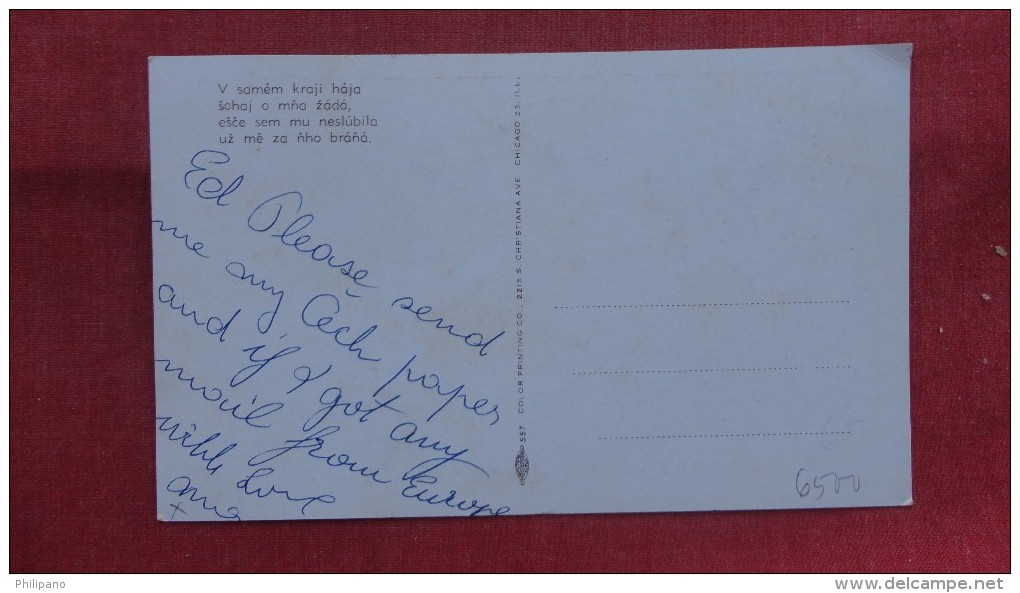 V samém kraji hája
šohaj o mňa žádá,
ešče sem mu neslúbila
už mě za ňho bráňá.
Ed Please send
me my Čech paper
and if I got any
mail from Europe
with Love
Ana
x
557 COLOR PRINTING CO., 2215 S. CHRISTIANA AVE. CHICAGO 23, ILL.
6500
Philipano
www.delcampe.net